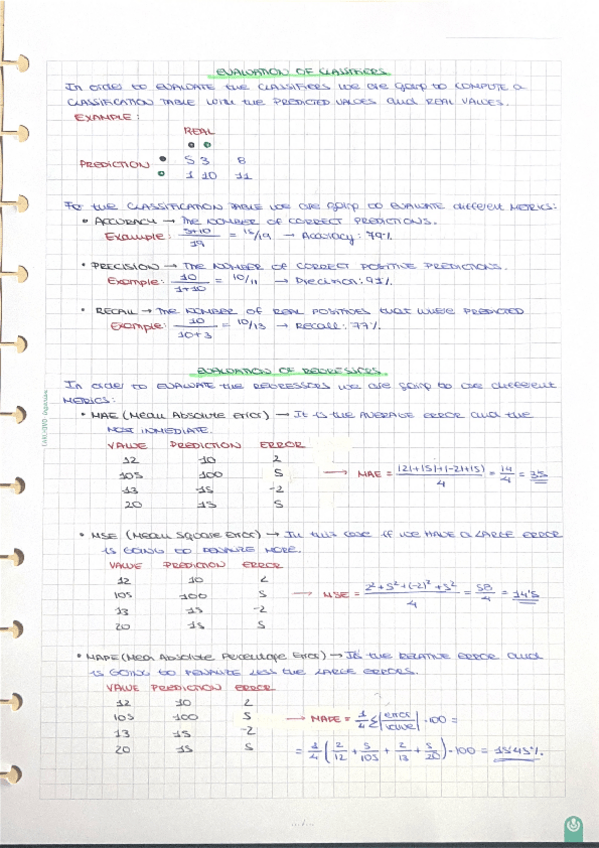 EVALUATION OF CLASSIFIERS
In order to EVALUATE the CLASSIFIERS we are going to COMPUTE a
CLASSIFICATION TABLE WITH the PREDICTED VALUES and REAL VALUES.
EXAMPLE:
REAL
PREDICTION 5 3 8
1 10 11
For the CLASSIFICATION TABLE we are going to EVALUATE different METRICS:
• ACCURACY → THE NUMBER OF CORRECT PREDICTIONS.
Example: 5+10/19 = 15/19 → Accuracy: 79%
• PRECISION → THE NUMBER OF CORRECT POSITIVE PREDICTIONS.
Example: 10/1+10 = 10/11 → Precision: 91%
• RECALL → THE NUMBER OF REAL POSITIVES that WERE PREDICTED
Example: 10/10+3 = 10/13 → Recall: 77%
EVALUATION OF REGRESSORS
In order to EVALUATE the REGRESSORS we are going to use different
METRICS:
• MAE (Mean Absolute Error) → It is the AVERAGE ERROR and the
MOST INMEDIATE.
VALUE PREDICTION ERROR
12 10 2
105 100 5 → MAE = |2|+|5|+|-2|+|5|/4 = 14/4 = 3'5
13 15 -2
20 15 5
• MSE (Mean Square Error) → In this case if we HAVE a LARGE ERROR
IS GOING TO PENALIZE MORE.
VALUE PREDICTION ERROR
12 10 2
105 100 5 → MSE = 2²+5²+(-2)²+5²/4 = 58/4 = 14'5
13 15 -2
20 15 5
• MAPE (Mean Absolute Percentage Error) → It's the RELATIVE ERROR and
IS GOING TO PENALIZE LESS the LARGE ERRORS.
VALUE PREDICTION ERROR
12 10 2
105 100 5 → MAPE = 1/4 Σ|error/value| · 100 =
13 15 -2
20 15 5 = 1/4 (2/12 + 5/105 + 2/13 + 5/20) · 100 = 15'45%
.../...